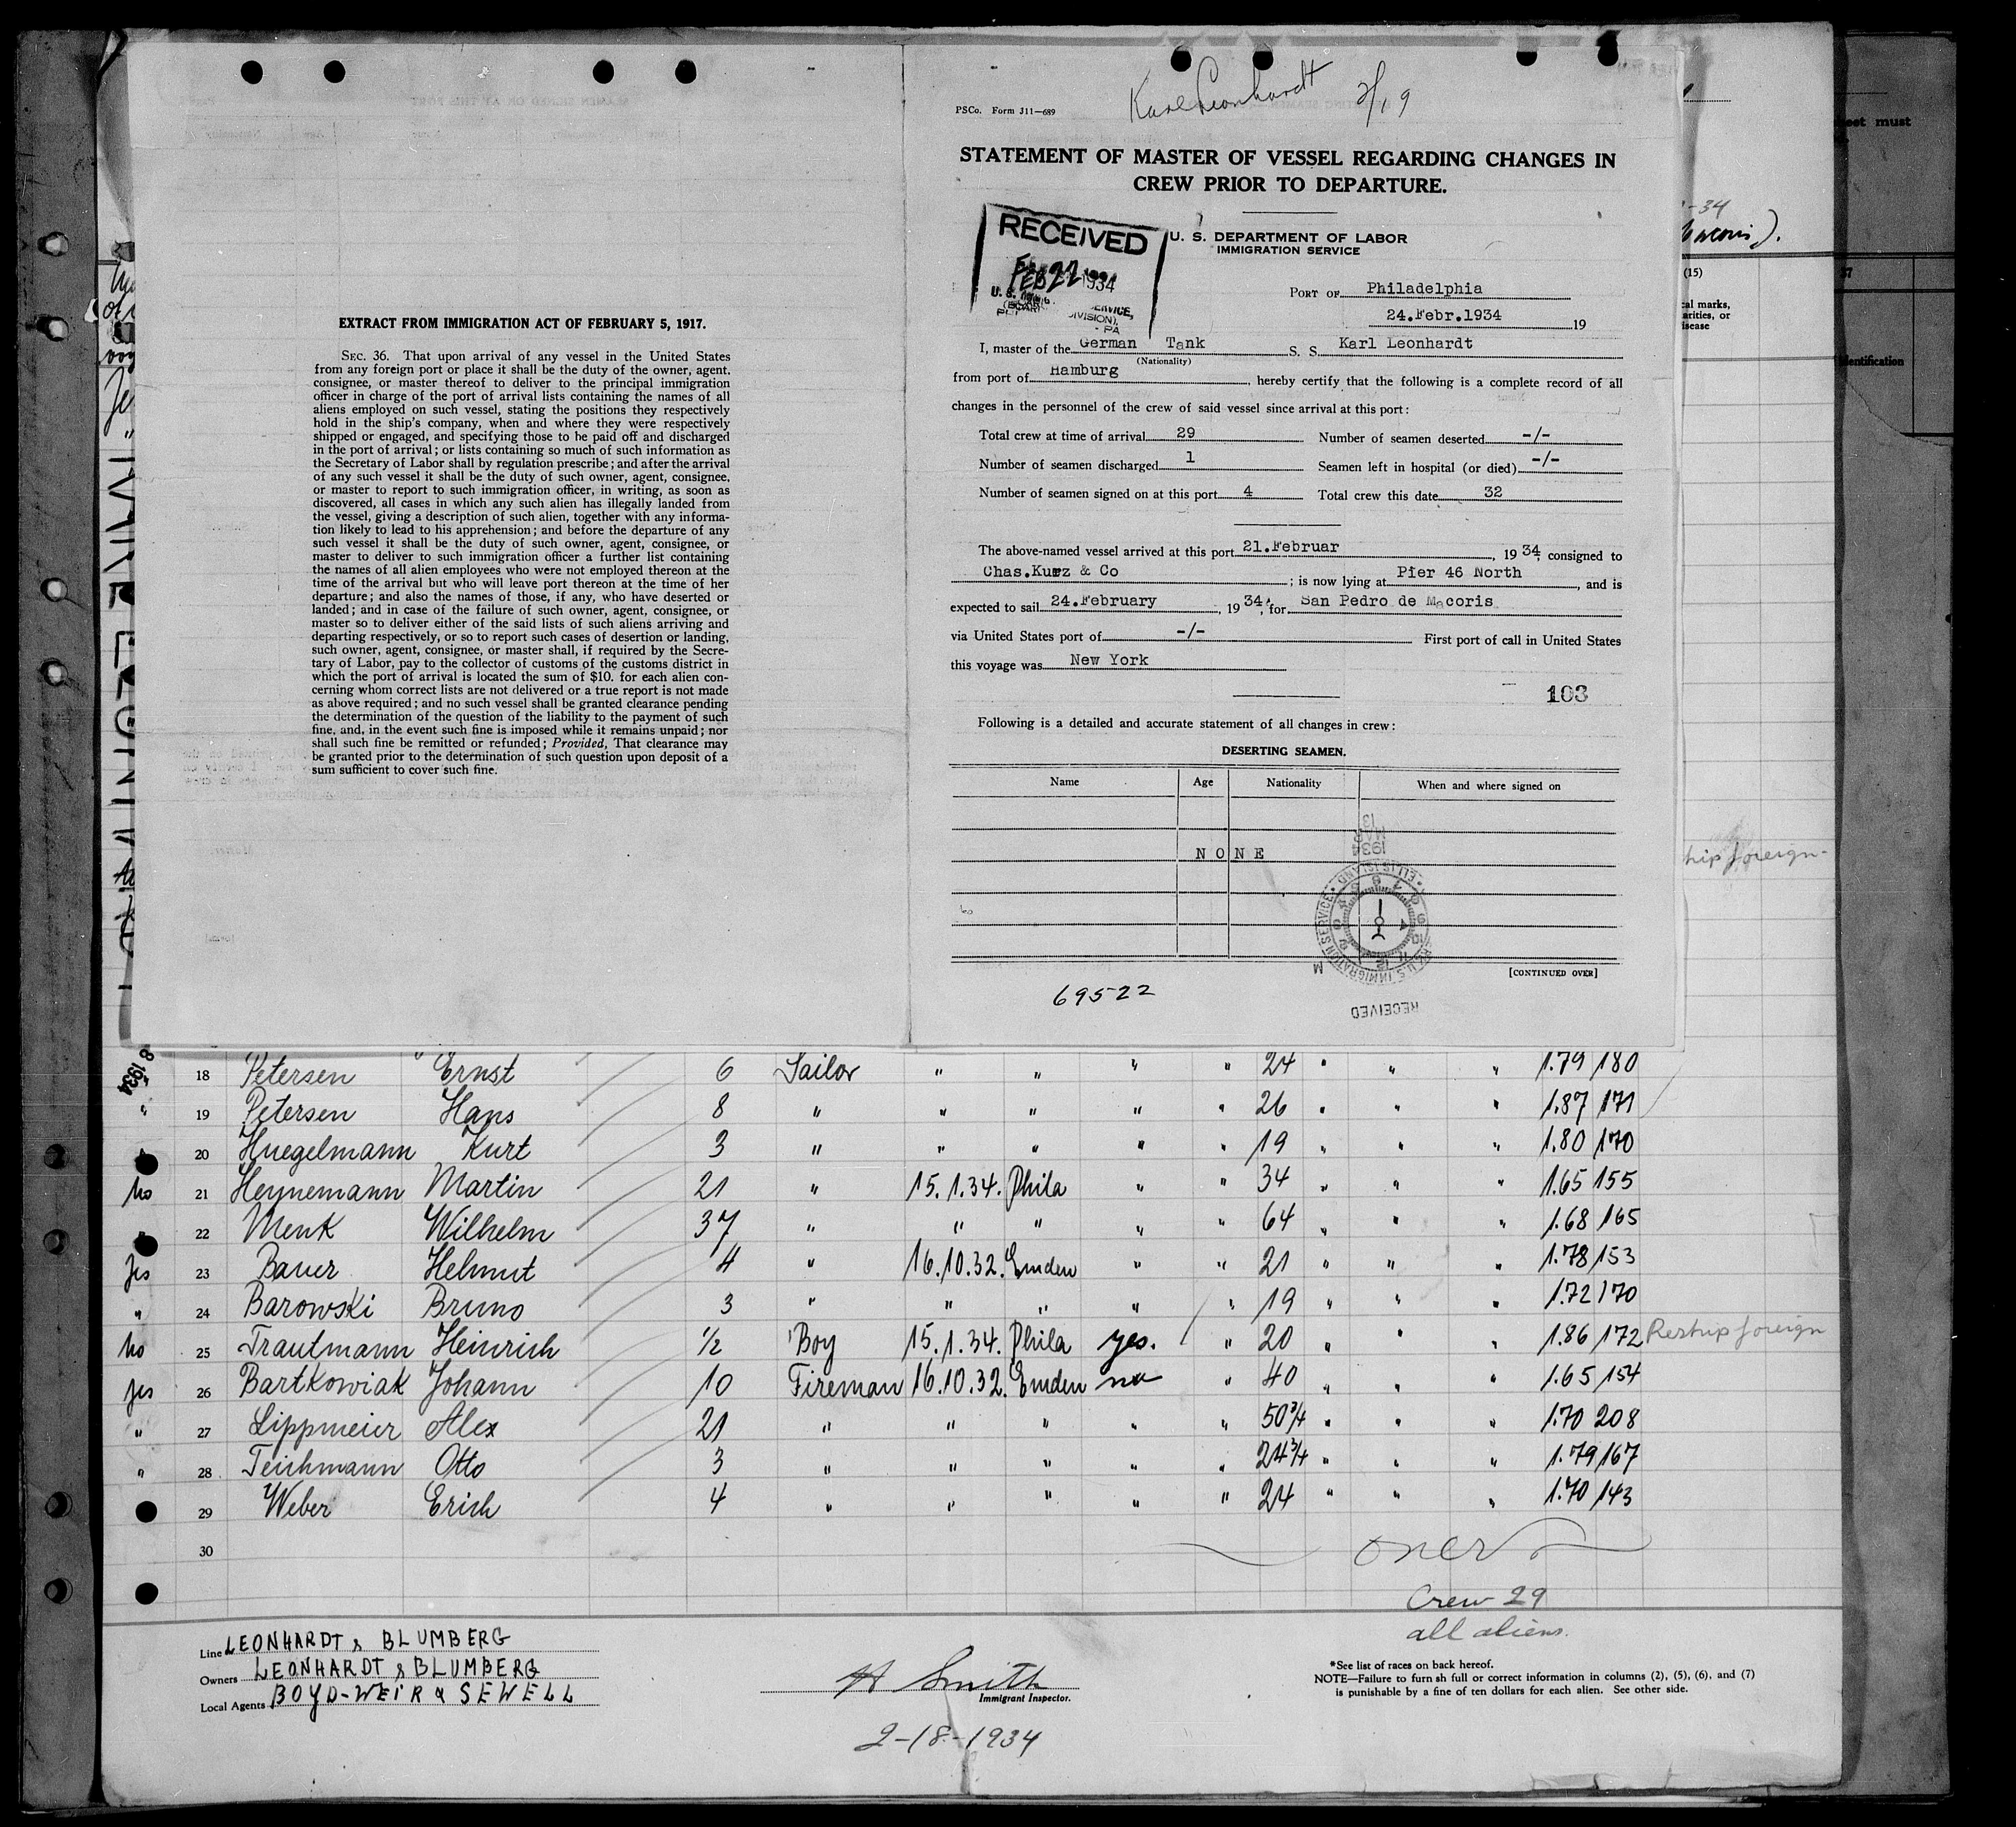 EXTRACT FROM IMMIGRATION ACT OF FEBRUARY 5, 1917.
SEC. 36. That upon arrival of any vessel in the United States
from any foreign port or place it shall be the duty of the owner, agent,
consignee, or master thereof to deliver to the principal immigration
officer in charge of the port of arrival lists containing the names of all
aliens employed on such vessel, stating the positions they respectively
hold in the ship's company, when and where they were respectively
shipped or engaged, and specifying those to be paid off and discharged
in the port of arrival; or lists containing so much of such information as
the Secretary of Labor shall by regulation prescribe; and after the arrival
of any such vessel it shall be the duty of such owner, agent, consignee,
or master to report to such immigration officer, in writing, as soon as
discovered, all cases in which any such alien has illegally landed from
the vessel, giving a description of such alien, together with any informa-
tion likely to lead to his apprehension; and before the departure of any
such vessel it shall be the duty of such owner, agent, consignee, or
master to deliver to such immigration officer a further list containing
the names of all alien employees who were not employed thereon at the
time of the arrival but who will leave port thereon at the time of her
departure; and also the names of those, if any, who have deserted or
landed; and in case of the failure of such owner, agent, consignee, or
master so to deliver either of the said lists of such aliens arriving and
departing respectively, or so to report such cases of desertion or landing,
such owner, agent, consignee, or master shall, if required by the Secre-
tary of Labor, pay to the collector of customs of the customs district in
which the port of arrival is located the sum of $10. for each alien con-
cerning whom correct lists are not delivered or a true report is not made
as above required; and no such vessel shall be granted clearance pending
the determination of the question of the liability to the payment of such
fine, and, in the event such fine is imposed while it remains unpaid; nor
shall such fine be remitted or refunded; Provided, That clearance may
be granted prior to the determination of such question upon deposit of a
sum sufficient to cover such fine.
Karl Leonhardt 2/19
PSCo. Form J11—689
STATEMENT OF MASTER OF VESSEL REGARDING CHANGES IN
CREW PRIOR TO DEPARTURE.
RECEIVED
FEB 22 1934
U. S. DEPARTMENT OF LABOR
IMMIGRATION SERVICE
PORT OF Philadelphia
24.Febr.1934 19
I, master of the German Tank S. S. Karl Leonhardt
(Nationality)
from port of Hamburg, hereby certify that the following is a complete record of all
changes in the personnel of the crew of said vessel since arrival at this port:
Total crew at time of arrival 29 Number of seamen deserted -/-
Number of seamen discharged 1 Seamen left in hospital (or died) -/-
Number of seamen signed on at this port 4 Total crew this date 32
The above-named vessel arrived at this port 21.Februar, 19 34 consigned to
Chas.Kurz & Co; is now lying at Pier 46 North, and is
expected to sail 24.February, 19 34, for San Pedro de Macoris
via United States port of -/- First port of call in United States
this voyage was New York
103
Following is a detailed and accurate statement of all changes in crew:
DESERTING SEAMEN.
Name Age Nationality When and where signed on
NONE
1934 MAR 13
U.S. IMMIGRATION SERVICE • ELLIS ISLAND
RECEIVED
[CONTINUED OVER]
69522
eet must
-34
(15)
cal marks,
arities, or
isease
37
dentification
hip foreign
8 1934
18 Petersen " Ernst 6 Sailor " " " " 24 " " " 1.79 180
" 19 Petersen Hans 8 " " " " " 26 " " " 1.87 171
20 Huegelmann Kurt 3 " " " " " 19 " " " 1.80 170
no 21 Heynemann Martin 21 " 15.1.34. Phila " " 34 " " " 1.65 155
22 Menk Wilhelm 37 " " " " " 64 " " " 1.68 165
yes 23 Bauer Helmut 4 " 16.10.32. Emden " " 21 " " " 1.78 153
" 24 Barowski Bruno 3 " " " " " 19 " " " 1.72 170
no 25 Trautmann Heinrich 1/2 Boy 15.1.34. Phila yes. " 20 " " " 1.86 172 Reship foreign
yes 26 Bartkowiak Johann 10 Fireman 16.10.32. Emden no " 40 " " " 1.65 154
" 27 Lippmeier Alex 21 " " " " " 50 3/4 " " " 1.70 208
" 28 Teichmann Otto 3 " " " " " 24 3/4 " " " 1.79 167
29 Weber Erich 4 " " " " " 24 " " " 1.70 143
30
over
Crew 29
all aliens.
Line LEONHARDT & BLUMBERG
Owners LEONHARDT & BLUMBERG
Local Agents BOYD-WEIR & SEWELL
H Smith
Immigrant Inspector.
2-18-1934
*See list of races on back hereof.
NOTE—Failure to furn sh full or correct information in columns (2), (5), (6), and (7)
is punishable by a fine of ten dollars for each alien. See other side.